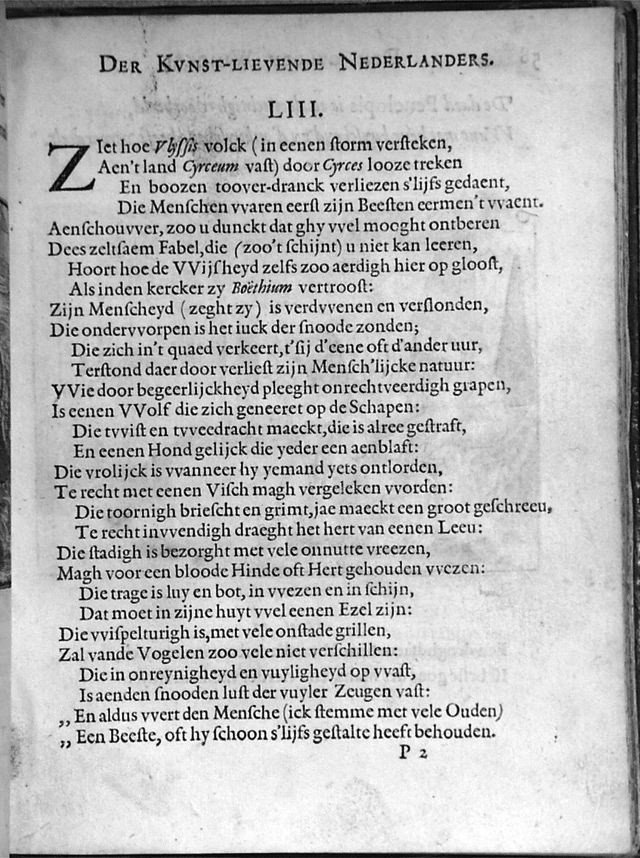 DER KVNST-LIEVENDE NEDERLANDERS.
LIII.
ZIet hoe Vlyssis volck (in eenen storm versteken,
Aen't land Cyrceum vast) door Cyrces looze treken
En boozen toover-dranck verliezen s'lijfs gedaent,
Die Menschen vvaren eerst zijn Beesten eermen't vvaent.
Aenschouvver, zoo u dunckt dat ghy vvel mooght ontberen
Dees zeltsaem Fabel, die (zoo't schijnt) u niet kan leeren,
Hoort hoe de VVijsheyd zelfs zoo aerdigh hier op gloost,
Als inden kercker zy Boëthium vertroost:
Zijn Menscheyd (zeght zy) is verdvvenen en verslonden,
Die ondervvorpen is het iuck der snoode zonden;
Die zich in't quaed verkeert, t'sij d'eene oft d'ander uur,
Terstond daer door verliest zijn Mensch'lijcke natuur:
VVie door begeerlijckheyd pleeght onrechtveerdigh grapen,
Is eenen VVolf die zich geneeret op de Schapen:
Die tvvist en tvveedracht maeckt, die is alree gestraft,
En eenen Hond gelijck die yeder een aenblaft:
Die vrolijck is vvanneer hy yemand yets ontlorden,
Te recht met eenen Visch magh vergeleken vvorden:
Die toornigh briescht en grimt, jae maeckt een groot geschreeu,
Te recht invvendigh draeght het hert van eenen Leeu:
Die stadigh is bezorght met vele onnutte vreezen,
Magh voor een bloode Hinde oft Hert gehouden vvezen:
Die trage is luy en bot, in vvezen en in schijn,
Dat moet in zijne huyt vvel eenen Ezel zijn:
Die vvispelturigh is, met vele onstade grillen,
Zal vande Vogelen zoo vele niet verschillen:
Die in onreynigheyd en vuyligheyd op vvast,
Is aenden snooden lust der vuyler Zeugen vast:
,, En aldus vvert den Mensche (ick stemme met vele Ouden)
,, Een Beeste, oft hy schoon s'lijfs gestalte heeft behouden.
P 2